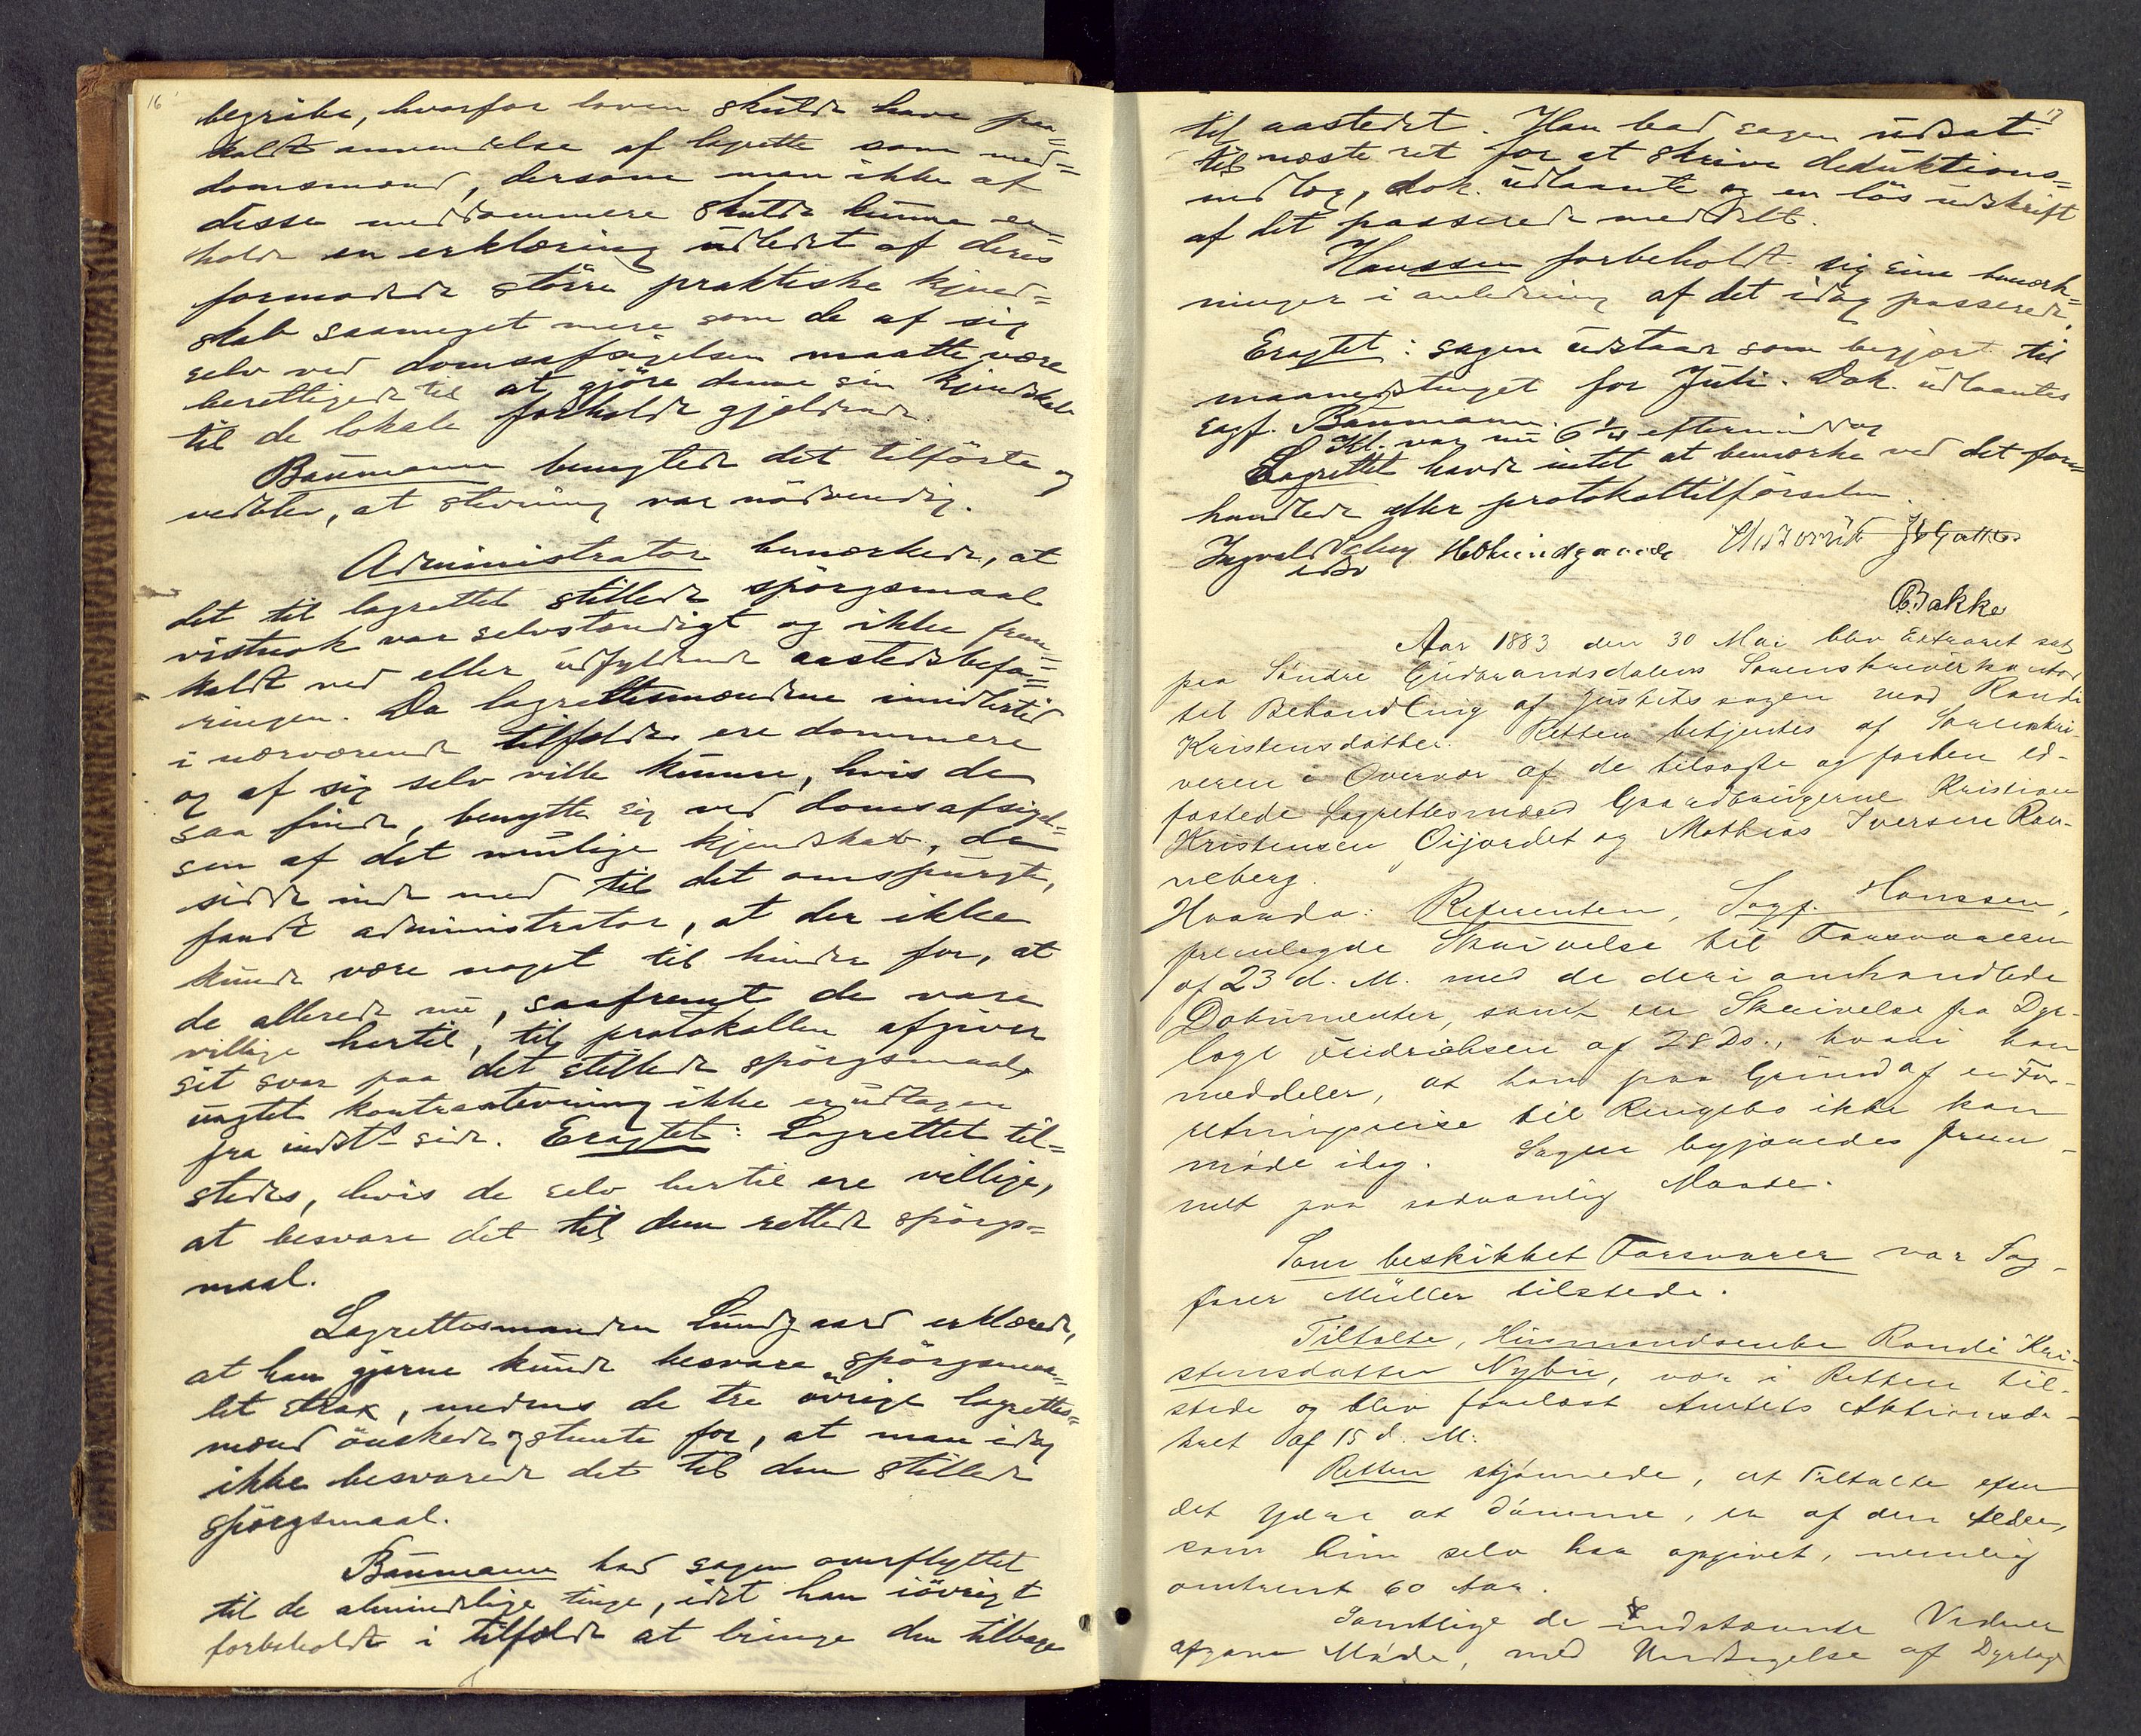 16
begribe, hvorfor loven skulde have paa=
kaldt anvendelse af lagrette som med=
domsmænd, dersom man ikke af
disse meddommere skulde kunne er=
holde en erklæring udledet af deres
formodede större praktiske kjend=
skab saameget mere som de af sig
selv ved domsafsigelsen maatte være
berettigede til at gjöre denne sin kjendskab
til de lokale forholde gjældende.
Baumann benegtede det tilförte og
vedblev, at stevning var nödvendig.
Administrator bemærkede, at
det til lagrettet stillede spörgsmaal
vistnok var selvstændigt og ikke frem=
kaldt ved eller udfyldende aastedsbefa=
ringen. Da lagrettesmændene imidlertid
i nærværende tilfælde ere dommere
og af sig selv ville kunne, hvis de
saa finde, benytte sig ved domsafsigel=
sen af det mulige kjendskab, de
sidde inde med til det omspurgte,
fandt administrator, at der ikke
kunde være noget til hinder for, at
de allerede nu, saafremt de vare
villige hertil, til protokollen afgiver
sit svar paa det stillede spörgsmaal,
uagtet kontrastevning ikke er udtagen
fra indst. side. Eragtet: Lagrettet til=
stedes, hvis de selv hertil ere villige,
at besvare det til dem rettede spörgs=
maal.
Lagrettesmanden Lundgaard erklærede,
at han gjerne kunde besvare spörgsmaa=
let strax, medens de tre övrige lagrettes=
mænd önskede og stemte for, at man idag
ikke besvarede det til dem stillede
spörgsmaal.
Baumann bad sagen overflyttet
til de almindelige tinge, idet han iövrigt
forbeholdt i tilfælde at bringe den tilbage
17
til aastedet. Han bad sagen udsat
til næste ret for at skrive deduktions=
indlæg, dok. udlaante og en lös udskrift
af det passerede meddelt.
Hanssen forbeholdt sig sine bemærk=
ninger i anledning af det idag passerede.
Eragtet: sagen udstaar som begjært til
maanedstinget for Juli. Dok. udlaantes
sagf. Baumann.
Kl. var nu 6 1/4 eftermiddag
Lagrettet havde intet at bemærke ved det for=
handlede eller protokoltilförselen.
Ingvald
Bakke
Aar 1883 den 30 Mai blev Extraret sat
paa Söndre Gudbrandsdalens Sorenskriverkontor
til Behandling af Justitssagen mod Randi
Kristensdatter. Retten betjentes af Sorenskri-
veren i Overvær af de tilsagte og forhen ed-
fæstede Lagrettesmænd Gaardbrugerne Kristian
Kristensen Öijordet og Mathias Iversen Ran-
neberg.
Hvorda: Referenten, Sagf. Hanssen,
fremlagde Skrivelse til Forsvareren
af 23 d. M. med de deri omhandlede
Dokumenter, samt en Skrivelse fra Dyr-
læge af 28 Ds., hvori han
meddeler, at han paa Grund af en For-
retningsreise til Ringebo ikke kan
möde idag. Sagen begjæredes frem-
met paa sædvanlig Maade.
Som beskikket Forsvarer var Sag-
förer Müller tilstede.
Tiltalte, Husmandsenke Randi Kri-
stensdatter Nybu, var i Retten til-
stede og blev forelæst Amtets Aktionsde-
kret af 15 d. M.
Retten skjönnede, at Tiltalte efter
det Ydre at dömme, er af den Alder,
som hun selv har opgivet, nemlig
omtrent 60 Aar.
Samtlige de indstævnte Vidner
afgave Möde, med Undtagelse af Dyrlæge